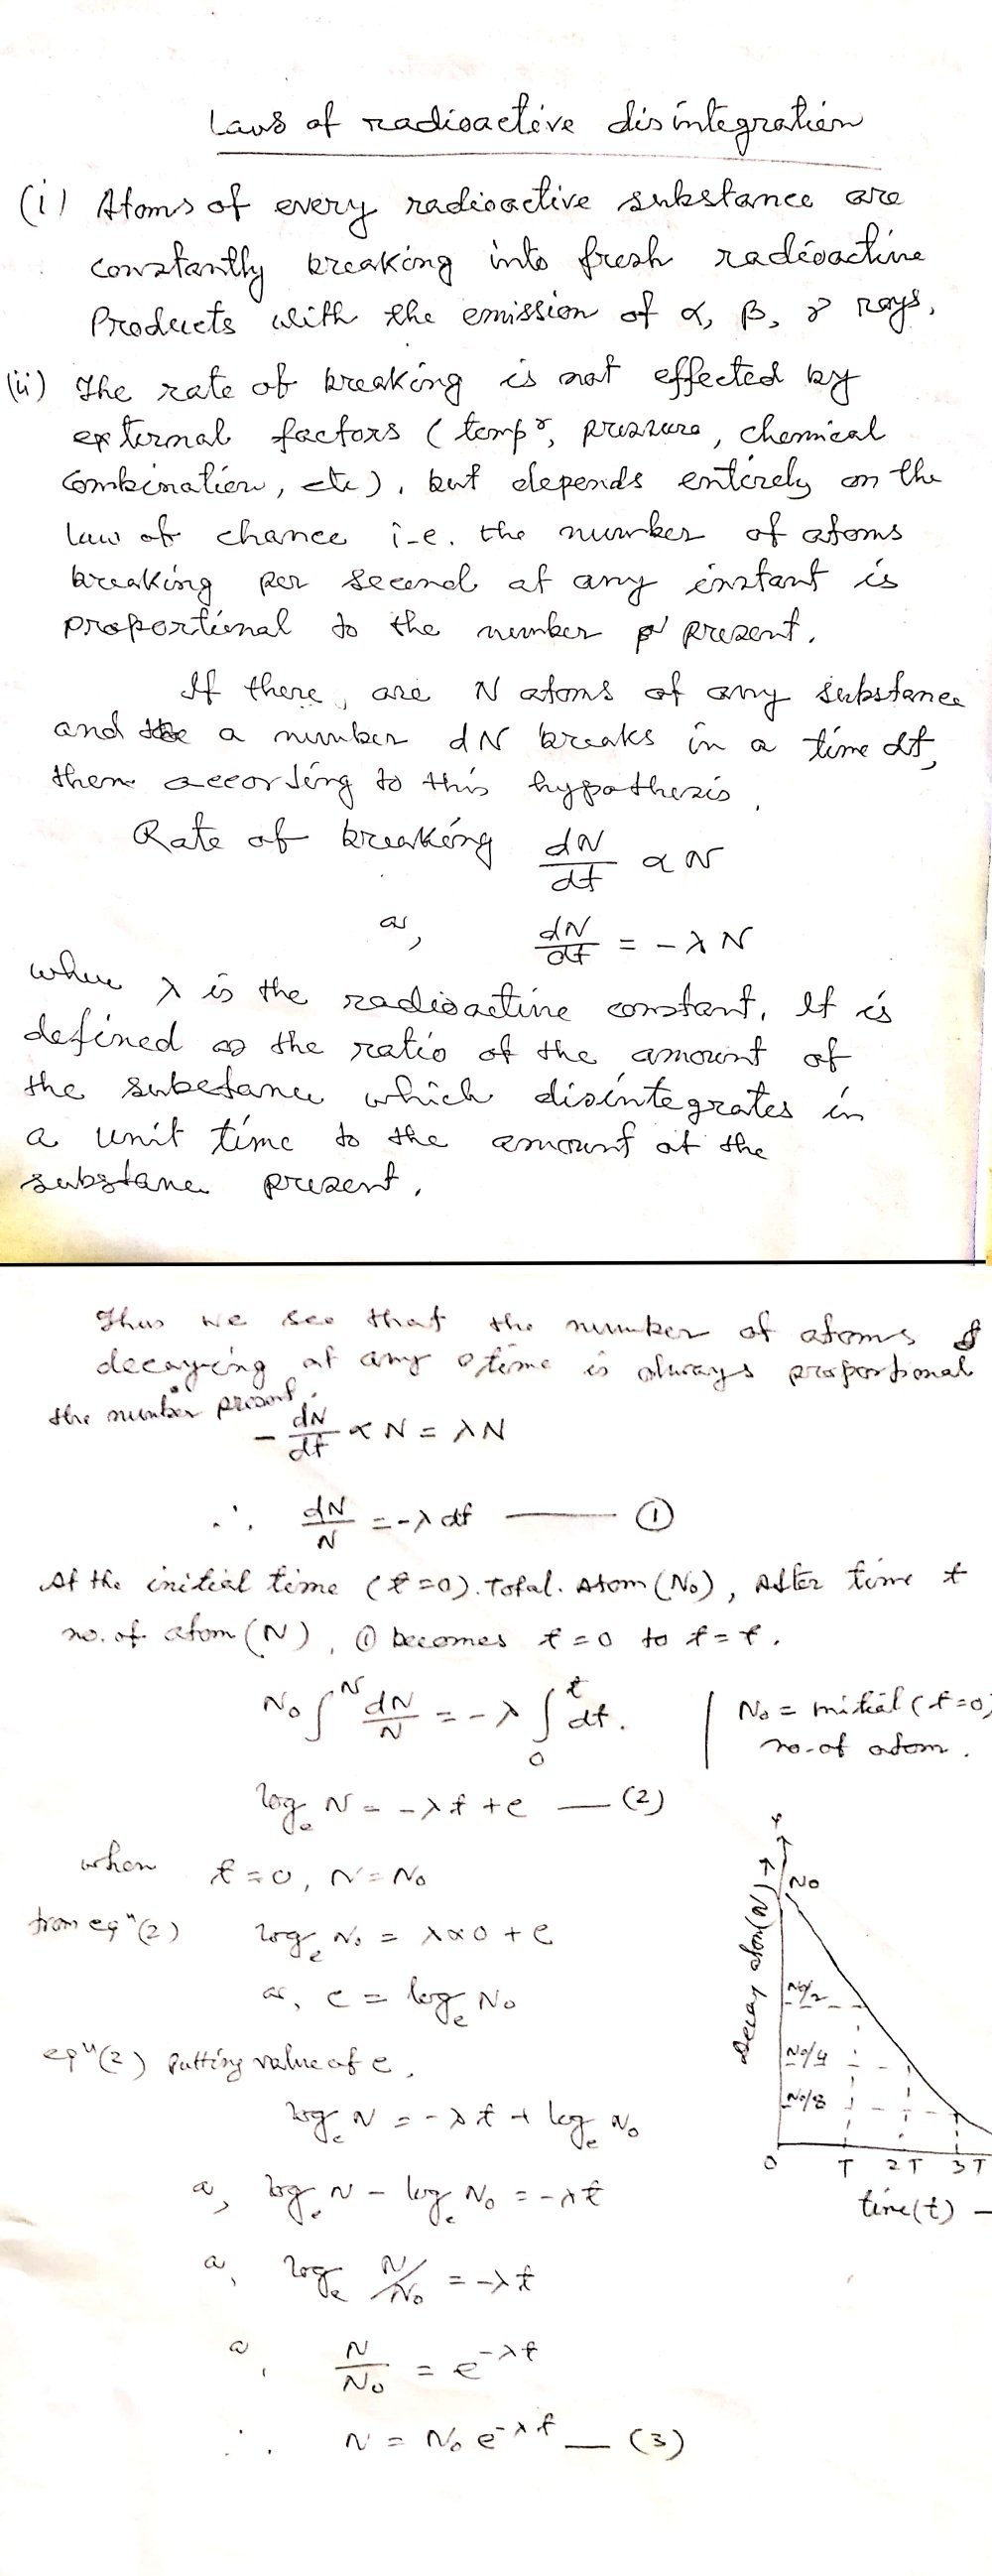 Laws of radioactive disintegration
(i) Atoms of every radioactive substance are
constantly breaking into fresh radioactive
Products with the emission of α, β, γ rays.
(ii) The rate of breaking is not effected by
external factors (tempr, pressure, chemical
combination, etc), but depends entirely on the
law of chance i-e. the number of atoms
breaking per second at any instant is
proportional to the number present.
If there, are N atoms of any substance
and a number dN breaks in a time dt,
then according to this hypothesis,
Rate of breaking dN/dt ∝ N
or, dN/dt = -λN
where λ is the radioactive constant. It is
defined as the ratio of the amount of
the substance which disintegrates in
a unit time to the amount of the
substance present.
Thus we see that the number of atoms
decaying at any time is always proportional
the number present.
-dN/dt ∝ N = λN
∴ dN/N = -λdt —— ①
At the initial time (t=0). Total. Atom (N₀), After time t
no. of atom (N), ① becomes t=0 to t=t.
N₀∫ᴺ dN/N = -λ ∫₀ᵗ dt. | N₀ = initial (t=0)
no-of atom.
logₑ N = -λt + c — (2)
when t=0, N=N₀
from eqⁿ(2) logₑ N₀ = λ×0 + c
or, c = logₑ N₀
eqⁿ(2) Putting value of c,
logₑ N = -λt + logₑ N₀
or, logₑ N - logₑ N₀ = -λt
or, logₑ N/N₀ = -λt
or, N/N₀ = e^-λt
∴ N = N₀ e^-λt — (3)
Decay atom(N) →
N₀
N₀/2
N₀/4
N₀/8
0 T 2T 3T
time(t) —